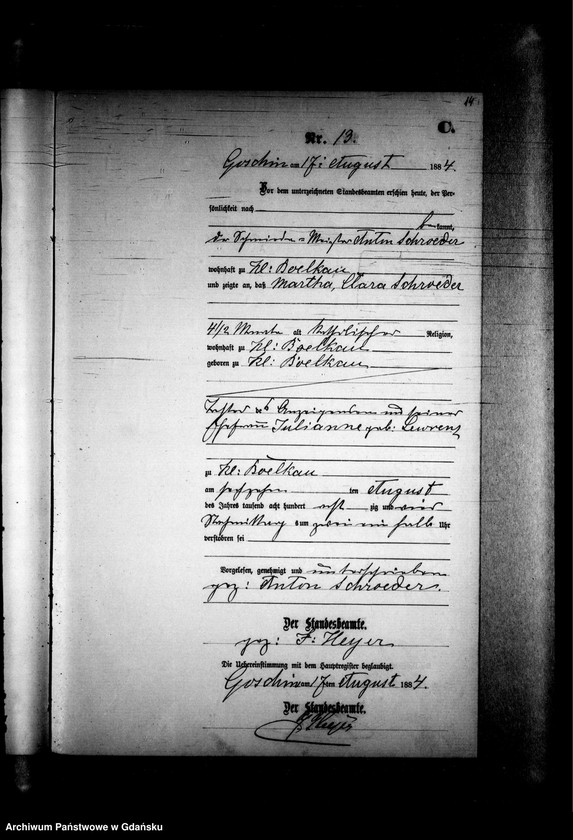 14
C.
Nr. 13.
Goschin am 17: August 1884.
Vor dem unterzeichneten Standesbeamten erschien heute, der Per-
sönlichkeit nach
bekannt,
der Schmiede-Meister Anton Schroeder
wohnhaft zu Kl: Boelkau
und zeigte an, daß Martha, Clara Schroeder
4 1/2 Monate alt katholischer Religion,
wohnhaft zu Kl: Boelkau
geboren zu Kl: Boelkau
Tochter des Anzeigenden und seiner
Ehefrau Julianne geb: Lewrenz
zu Kl: Boelkau
am sechzehn ten August
des Jahres tausend acht hundert acht zig und vier
Nachmittag s um zwei ein halb Uhr
verstorben sei
Vorgelesen, genehmigt und unterschrieben
gez: Anton Schroeder.
Der Standesbeamte.
gez: F: Heyer
Die Uebereinstimmung mit dem Hauptregister beglaubigt.
Goschin am 17ten August 1884.
Der Standesbeamte.
F Heyer
Archiwum Państwowe w Gdańsku